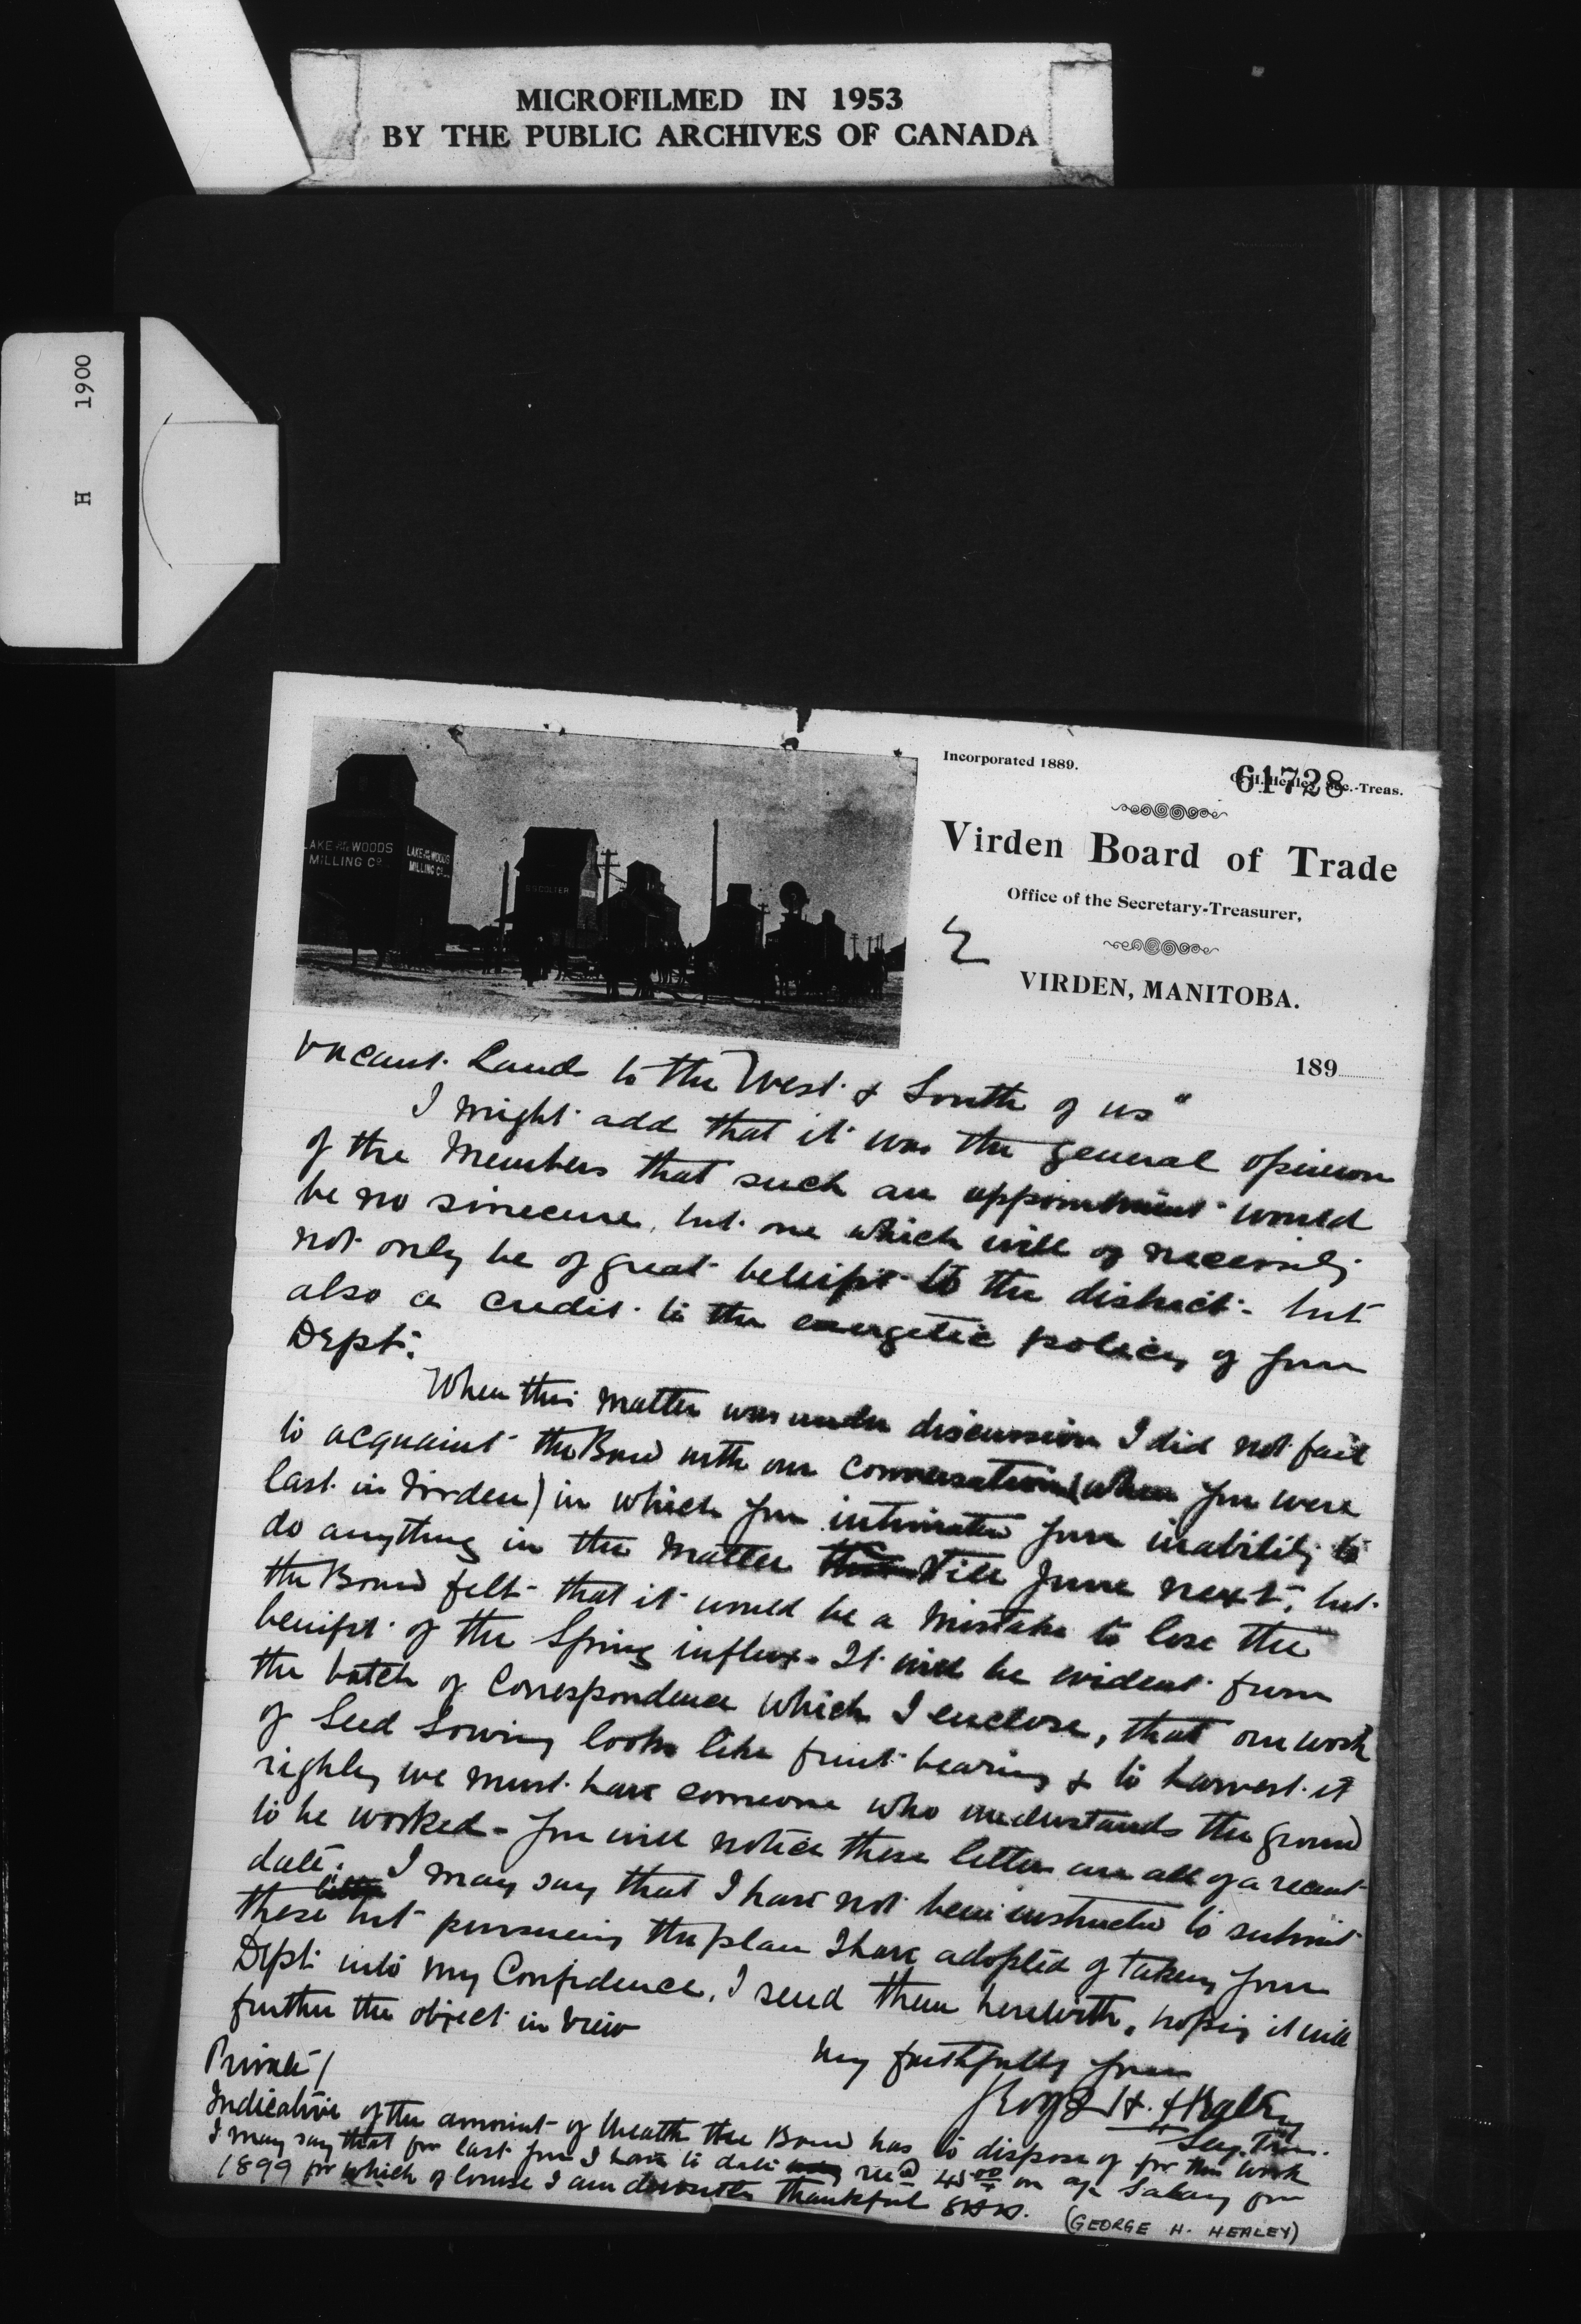 MICROFILMED IN 1953
BY THE PUBLIC ARCHIVES OF CANADA
H 1900
LAKE OF THE WOODS
MILLING Co
LAKE OF THE WOODS
MILLING Co
Incorporated 1889.
61728
G. H. Healey, Sec.-Treas.
Virden Board of Trade
Office of the Secretary-Treasurer,
2
VIRDEN, MANITOBA.
189
vacant Lands to the West & South of us"
I might add that it was the general opinion
of the Members that such an appointment would
be no sinecure, but one which will of necessity
not only be of great benefit to the district - but
also a credit to the energetic policy of your
Dept.
When this matter was under discussion I did not fail
to acquaint the Board with our conversation (when you were
last in Virden) in which you intimated your inability to
do anything in the matter till June next, but
the Board felt that it would be a mistake to lose the
benifit of the Spring influx. It will be evident from
the batch of Correspondence which I enclose, that our work
of Seed Sowing looks like fruit bearing & to harvest it
rightly we must have someone who understands the ground
to be worked - You will notice these letters are all of a recent
date. I may say that I have not been instructed to submit
these but pursuing the plan I have adopted of taking your
Dept. into my Confidence, I send them herewith, hoping it will
further the object in view
Very faithfully yours
George H. Healey
Secy. Treas.
Private/
Indicative of the amount of wealth the Board has to dispose of for this work
I may say that for last year I have to date recd 45 00 on a/c Salary for
1899 for which of course I am devoutly thankful GHH.
(GEORGE H. HEALEY)